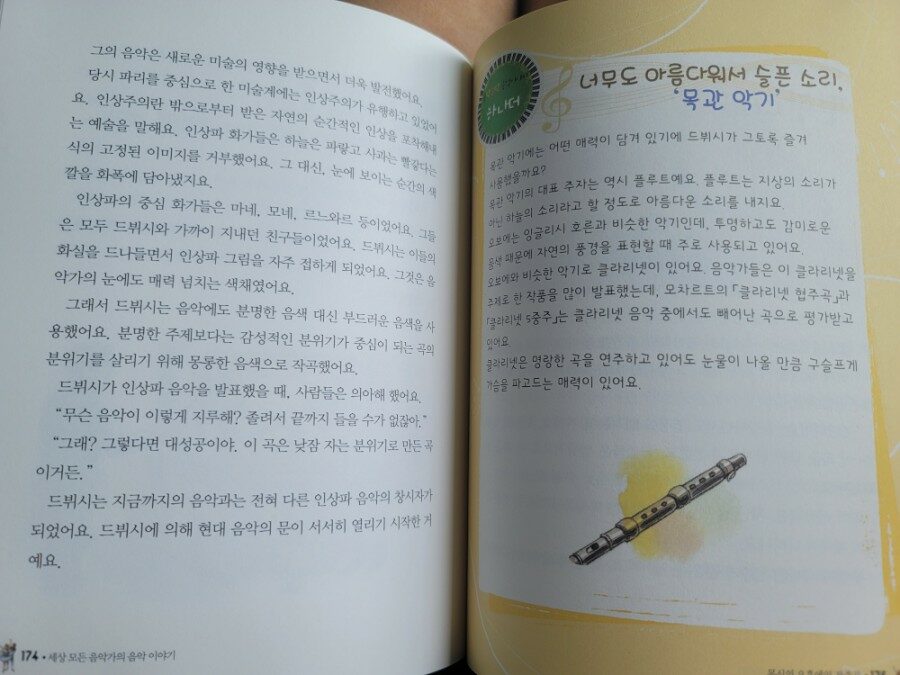 그의 음악은 새로운 미술의 영향을 받으면서 더욱 발전했어요.
당시 파리를 중심으로 한 미술계에는 인상주의가 유행하고 있었어
요. 인상주의란 밖으로부터 받은 자연의 순간적인 인상을 포착해내
는 예술을 말해요. 인상파 화가들은 하늘은 파랗고 사과는 빨갛다는
식의 고정된 이미지를 거부했어요. 그 대신, 눈에 보이는 순간의 색
깔을 화폭에 담아냈지요.
인상파의 중심 화가들은 마네, 모네, 르느와르 등이었어요. 그들
은 모두 드뷔시와 가까이 지내던 친구들이었어요. 드뷔시는 이들의
화실을 드나들면서 인상파 그림을 자주 접하게 되었어요. 그것은 음
악가의 눈에도 매력 넘치는 색채였어요.
그래서 드뷔시는 음악에도 분명한 음색 대신 부드러운 음색을 사
용했어요. 분명한 주제보다는 감성적인 분위기가 중심이 되는 곡의
분위기를 살리기 위해 몽롱한 음색으로 작곡했어요.
드뷔시가 인상파 음악을 발표했을 때, 사람들은 의아해 했어요.
“무슨 음악이 이렇게 지루해? 졸려서 끝까지 들을 수가 없잖아.”
“그래? 그렇다면 대성공이야. 이 곡은 낮잠 자는 분위기로 만든 곡
이거든.”
드뷔시는 지금까지의 음악과는 전혀 다른 인상파 음악의 창시자가
되었어요. 드뷔시에 의해 현대 음악의 문이 서서히 열리기 시작한 거
예요.
174 • 세상 모든 음악가의 음악 이야기
하나더
너무도 아름다워서 슬픈 소리,
‘목관 악기’
목관 악기에는 어떤 매력이 담겨 있기에 드뷔시가 그토록 즐겨
사용했을까요?
목관 악기의 대표 주자는 역시 플루트예요. 플루트는 지상의 소리가
아닌 하늘의 소리라고 할 정도로 아름다운 소리를 내지요.
오보에는 잉글리시 호른과 비슷한 악기인데, 투명하고도 감미로운
음색 때문에 자연의 풍경을 표현할 때 주로 사용되고 있어요.
오보에와 비슷한 악기로 클라리넷이 있어요. 음악가들은 이 클라리넷을
주제로 한 작품을 많이 발표했는데, 모차르트의 「클라리넷 협주곡」과
「클라리넷 5중주」는 클라리넷 음악 중에서도 빼어난 곡으로 평가받고
있어요.
클라리넷은 명랑한 곡을 연주하고 있어도 눈물이 나올 만큼 구슬프게
가슴을 파고드는 매력이 있어요.